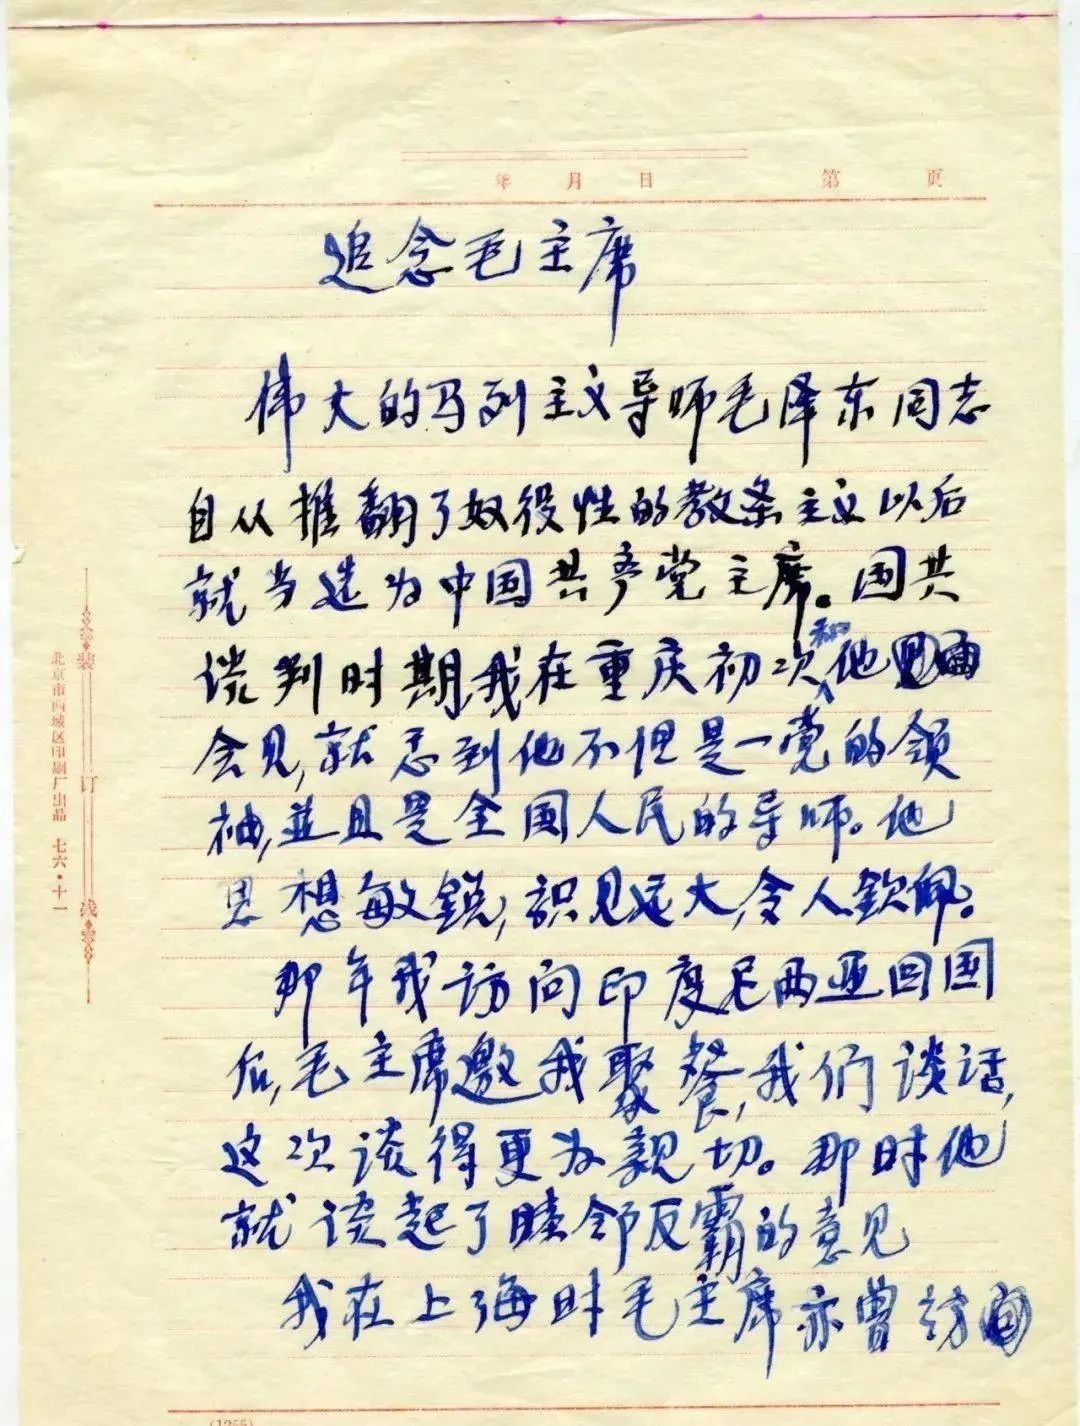 年 月 日 第 页
追念毛主席
伟大的马列主义导师毛泽东同志
自从推翻了奴役性的教条主义以后
就当选为中国共产党主席。国共
谈判时期,我在重庆初次和他
会见,就悉到他不但是一党的领
袖,並且是全国人民的导师。他
思想敏锐,识见远大,令人钦佩。
那年我访问印度尼西亚回国
后,毛主席邀我聚餐,我们谈话,
这次谈得更为亲切。那时他
就谈起了睦邻反霸的意见
我在上海时毛主席亦曾访
装订线
北京市西城区印刷厂出品 七六·十一
(1255)